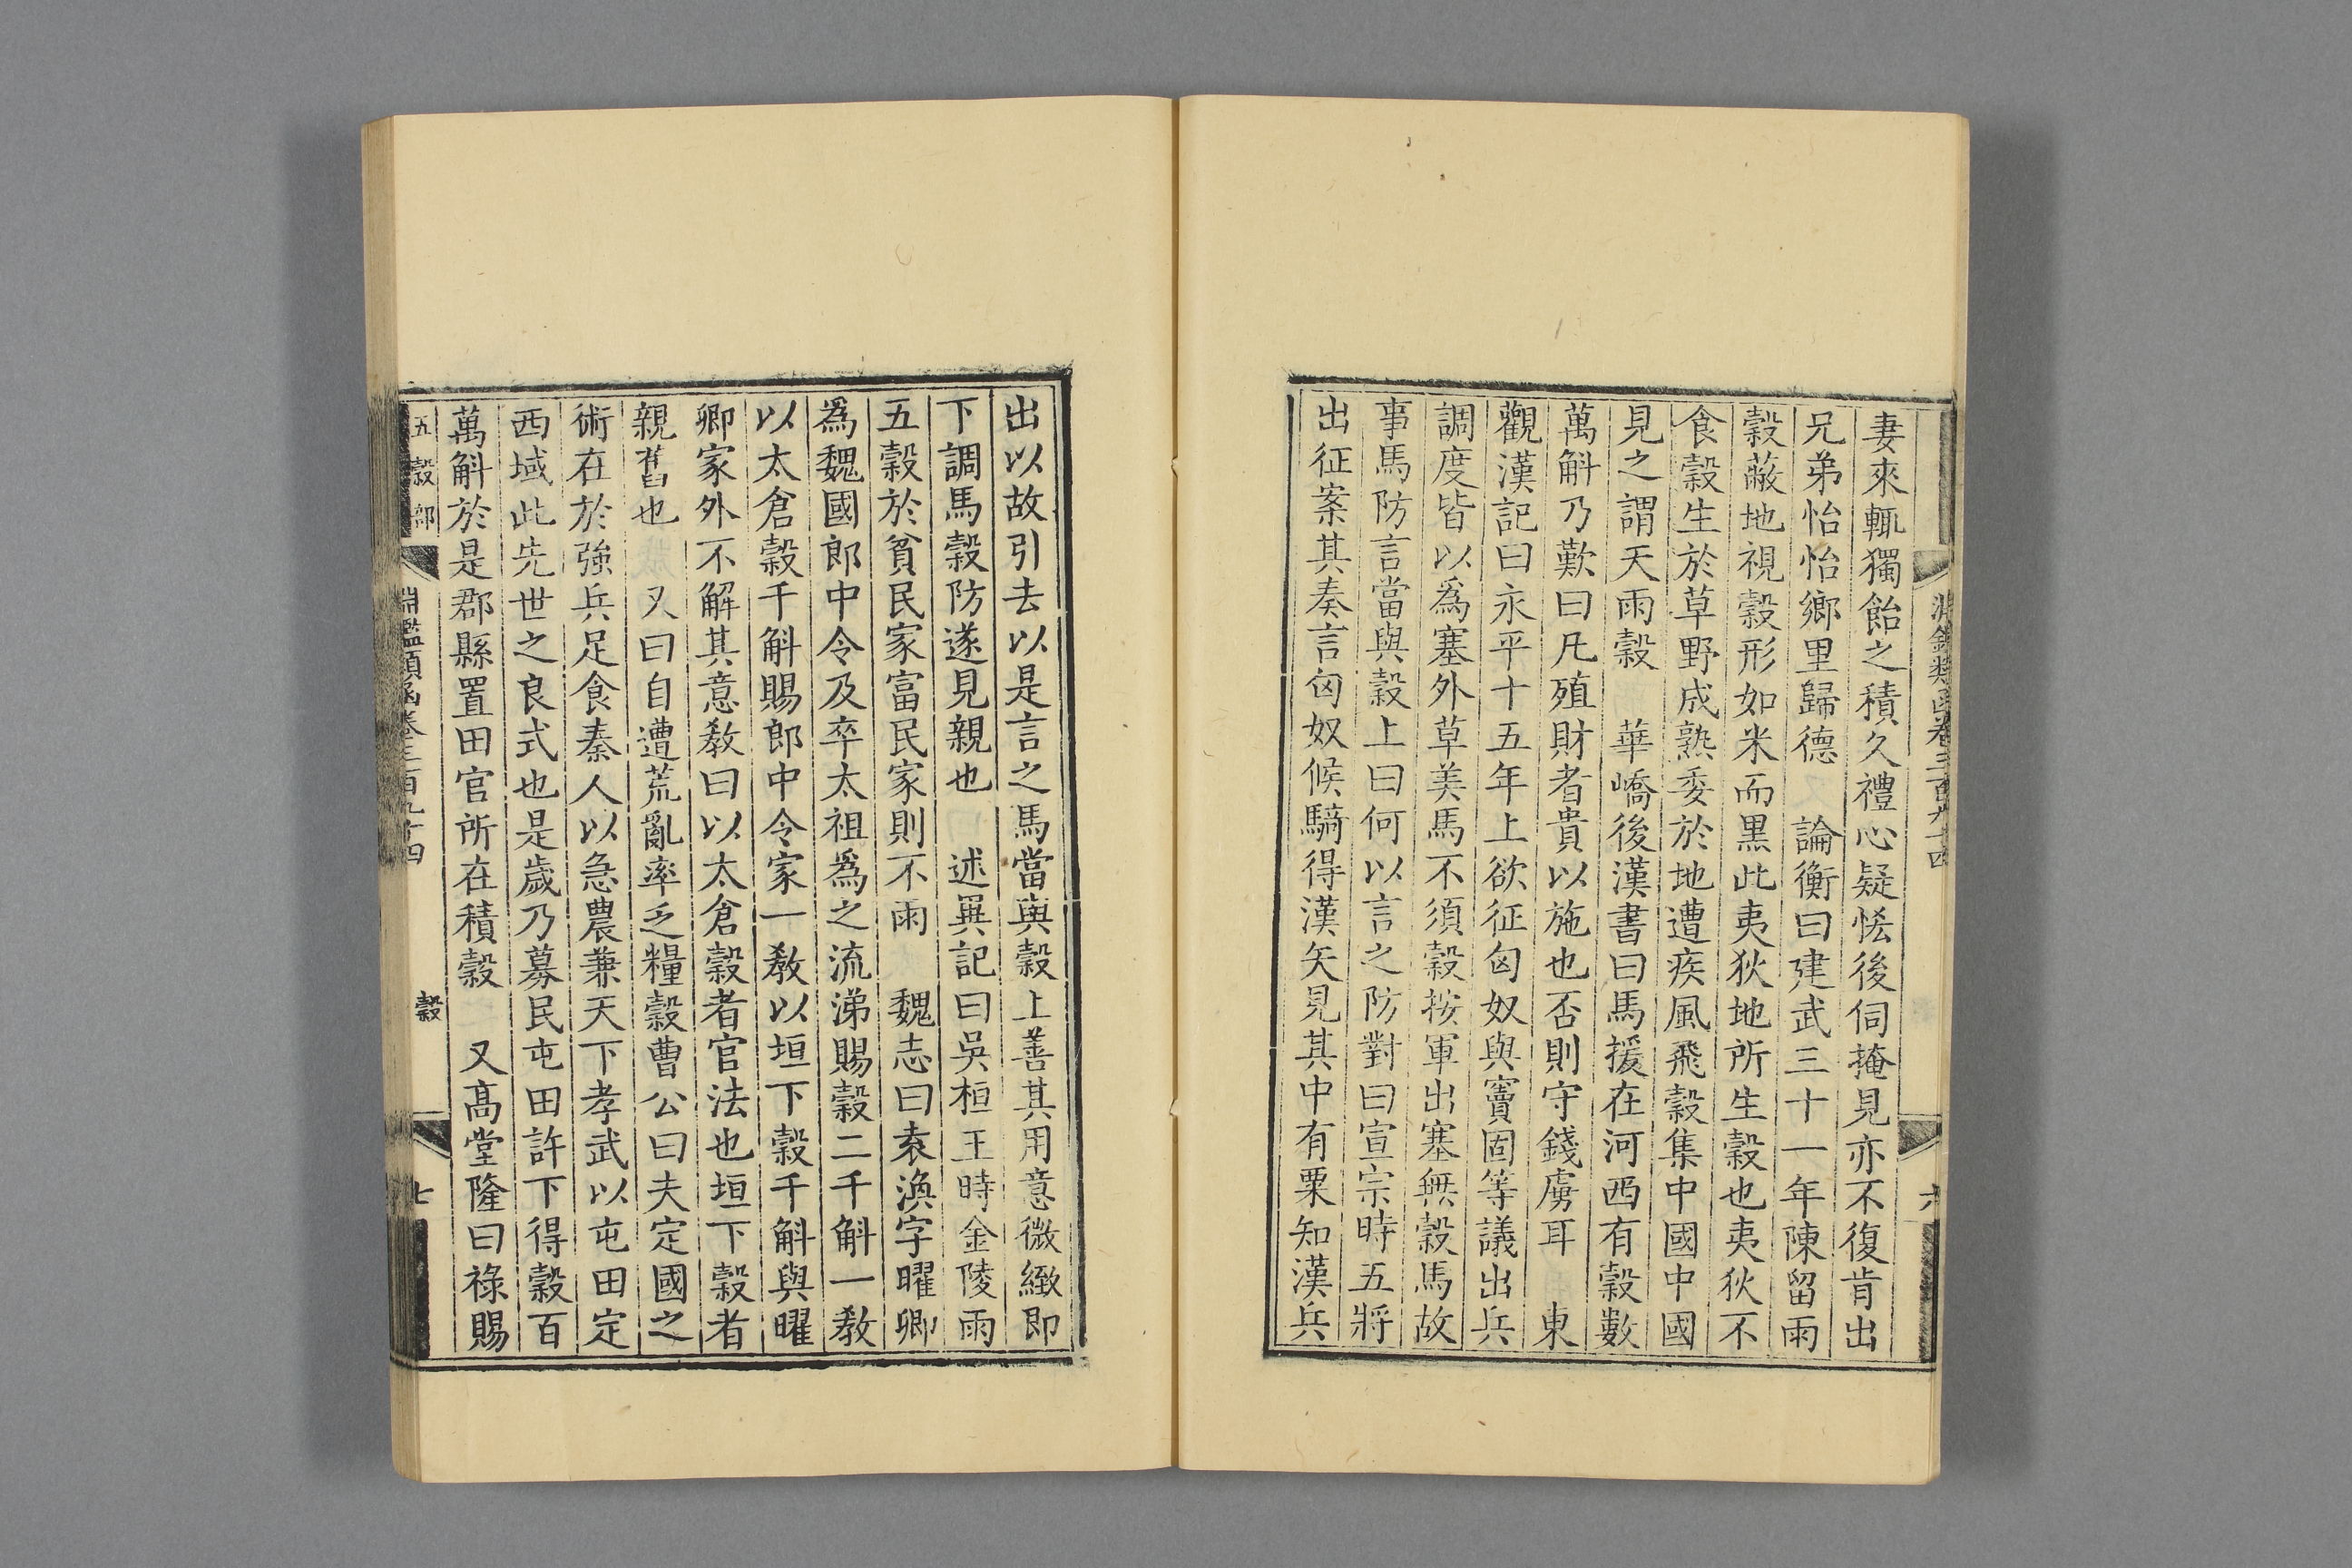 淵鑑類函卷三百九十四
六
妻來輒獨飴之積久禮心疑恠後伺掩見亦不復肯出
兄弟怡怡鄉里歸德　論衡曰建武三十一年陳留雨
穀蔽地視穀形如米而黑此夷狄地所生穀也夷狄不
食穀生於草野成熟委於地遭疾風飛穀集中國中國
見之謂天雨穀　華嶠後漢書曰馬援在河西有穀數
萬斛乃歎曰凡殖財者貴以施也否則守錢虜耳　東
觀漢記曰永平十五年上欲征匈奴與竇固等議出兵
調度皆以爲塞外草美馬不須穀按軍出塞無穀馬故
事馬防言當與穀上曰何以言之防對曰宣宗時五將
出征案其奏言匈奴候騎得漢矢見其中有粟知漢兵
出以故引去以是言之馬當與穀上善其用意微緻即
下調馬穀防遂見親也　述異記曰吳桓王時金陵雨
五穀於貧民家富民家則不雨　魏志曰袁渙字曜卿
爲魏國郎中令及卒太祖爲之流涕賜穀二千斛一教
以太倉穀千斛賜郎中令家一教以垣下穀千斛與曜
卿家外不解其意教曰以太倉穀者官法也垣下穀者
親舊也　又曰自遭荒亂率乏糧穀曹公曰夫定國之
術在於強兵足食秦人以急農兼天下孝武以屯田定
西域此先世之良式也是歲乃募民屯田許下得穀百
萬斛於是郡縣置田官所在積穀　又高堂隆曰祿賜
五穀部
淵鑑類函卷三百九十四
穀
七